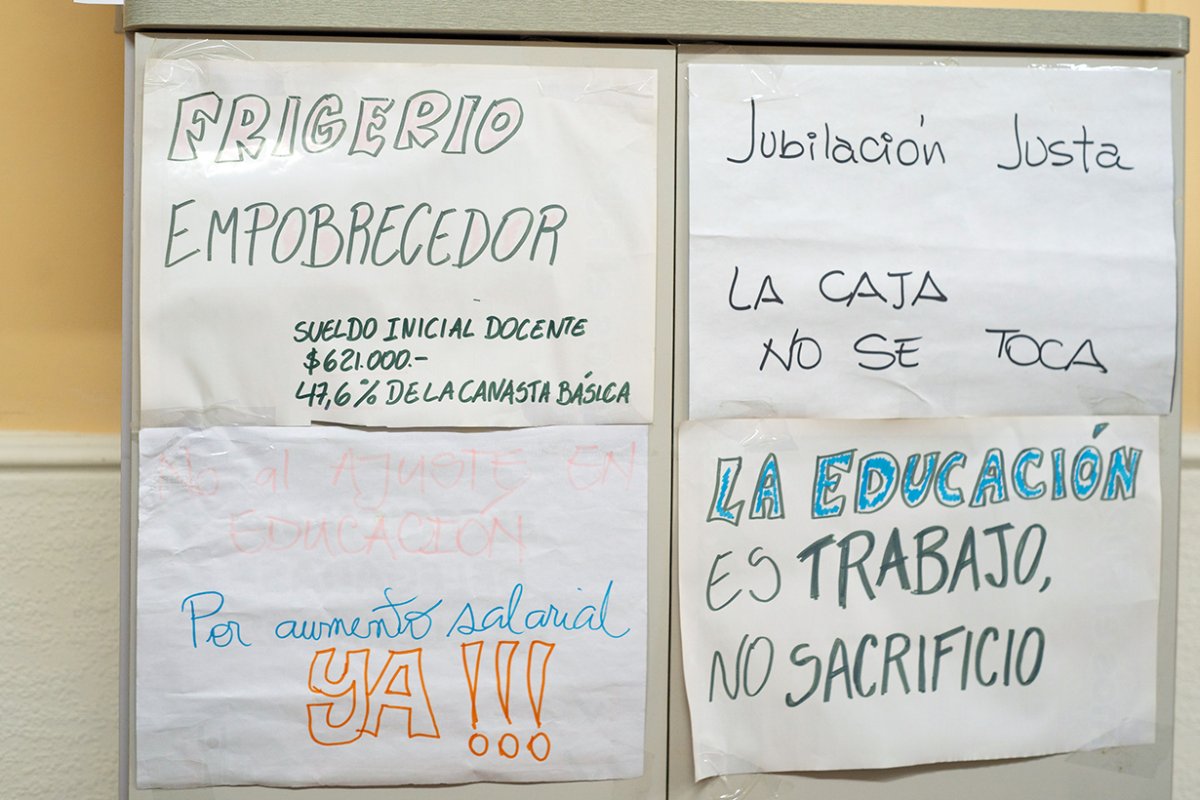 FRIGERIO
EMPOBRECEDOR
SUELDO INICIAL DOCENTE
$621.000.-
47,6% DE LA CANASTA BÁSICA
Jubilación Justa
LA CAJA
NO SE TOCA
No al AJUSTE EN
EDUCACIÓN
Por aumento salarial
YA!!!
LA EDUCACIÓN
ES TRABAJO,
NO SACRIFICIO